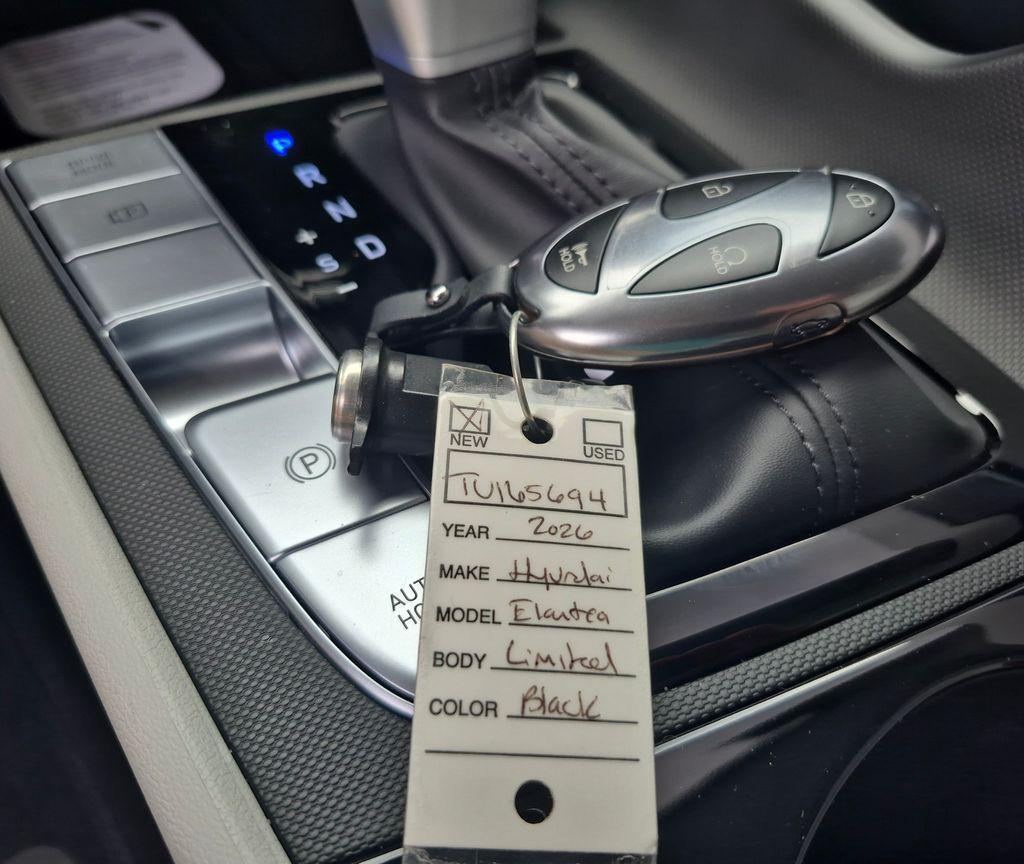 P
R
N
D
+
S
HOLD
HOLD
P
AUT
HO
NEW
USED
TU165694
YEAR 2026
MAKE Hyundai
MODEL Elantra
BODY Limited
COLOR Black